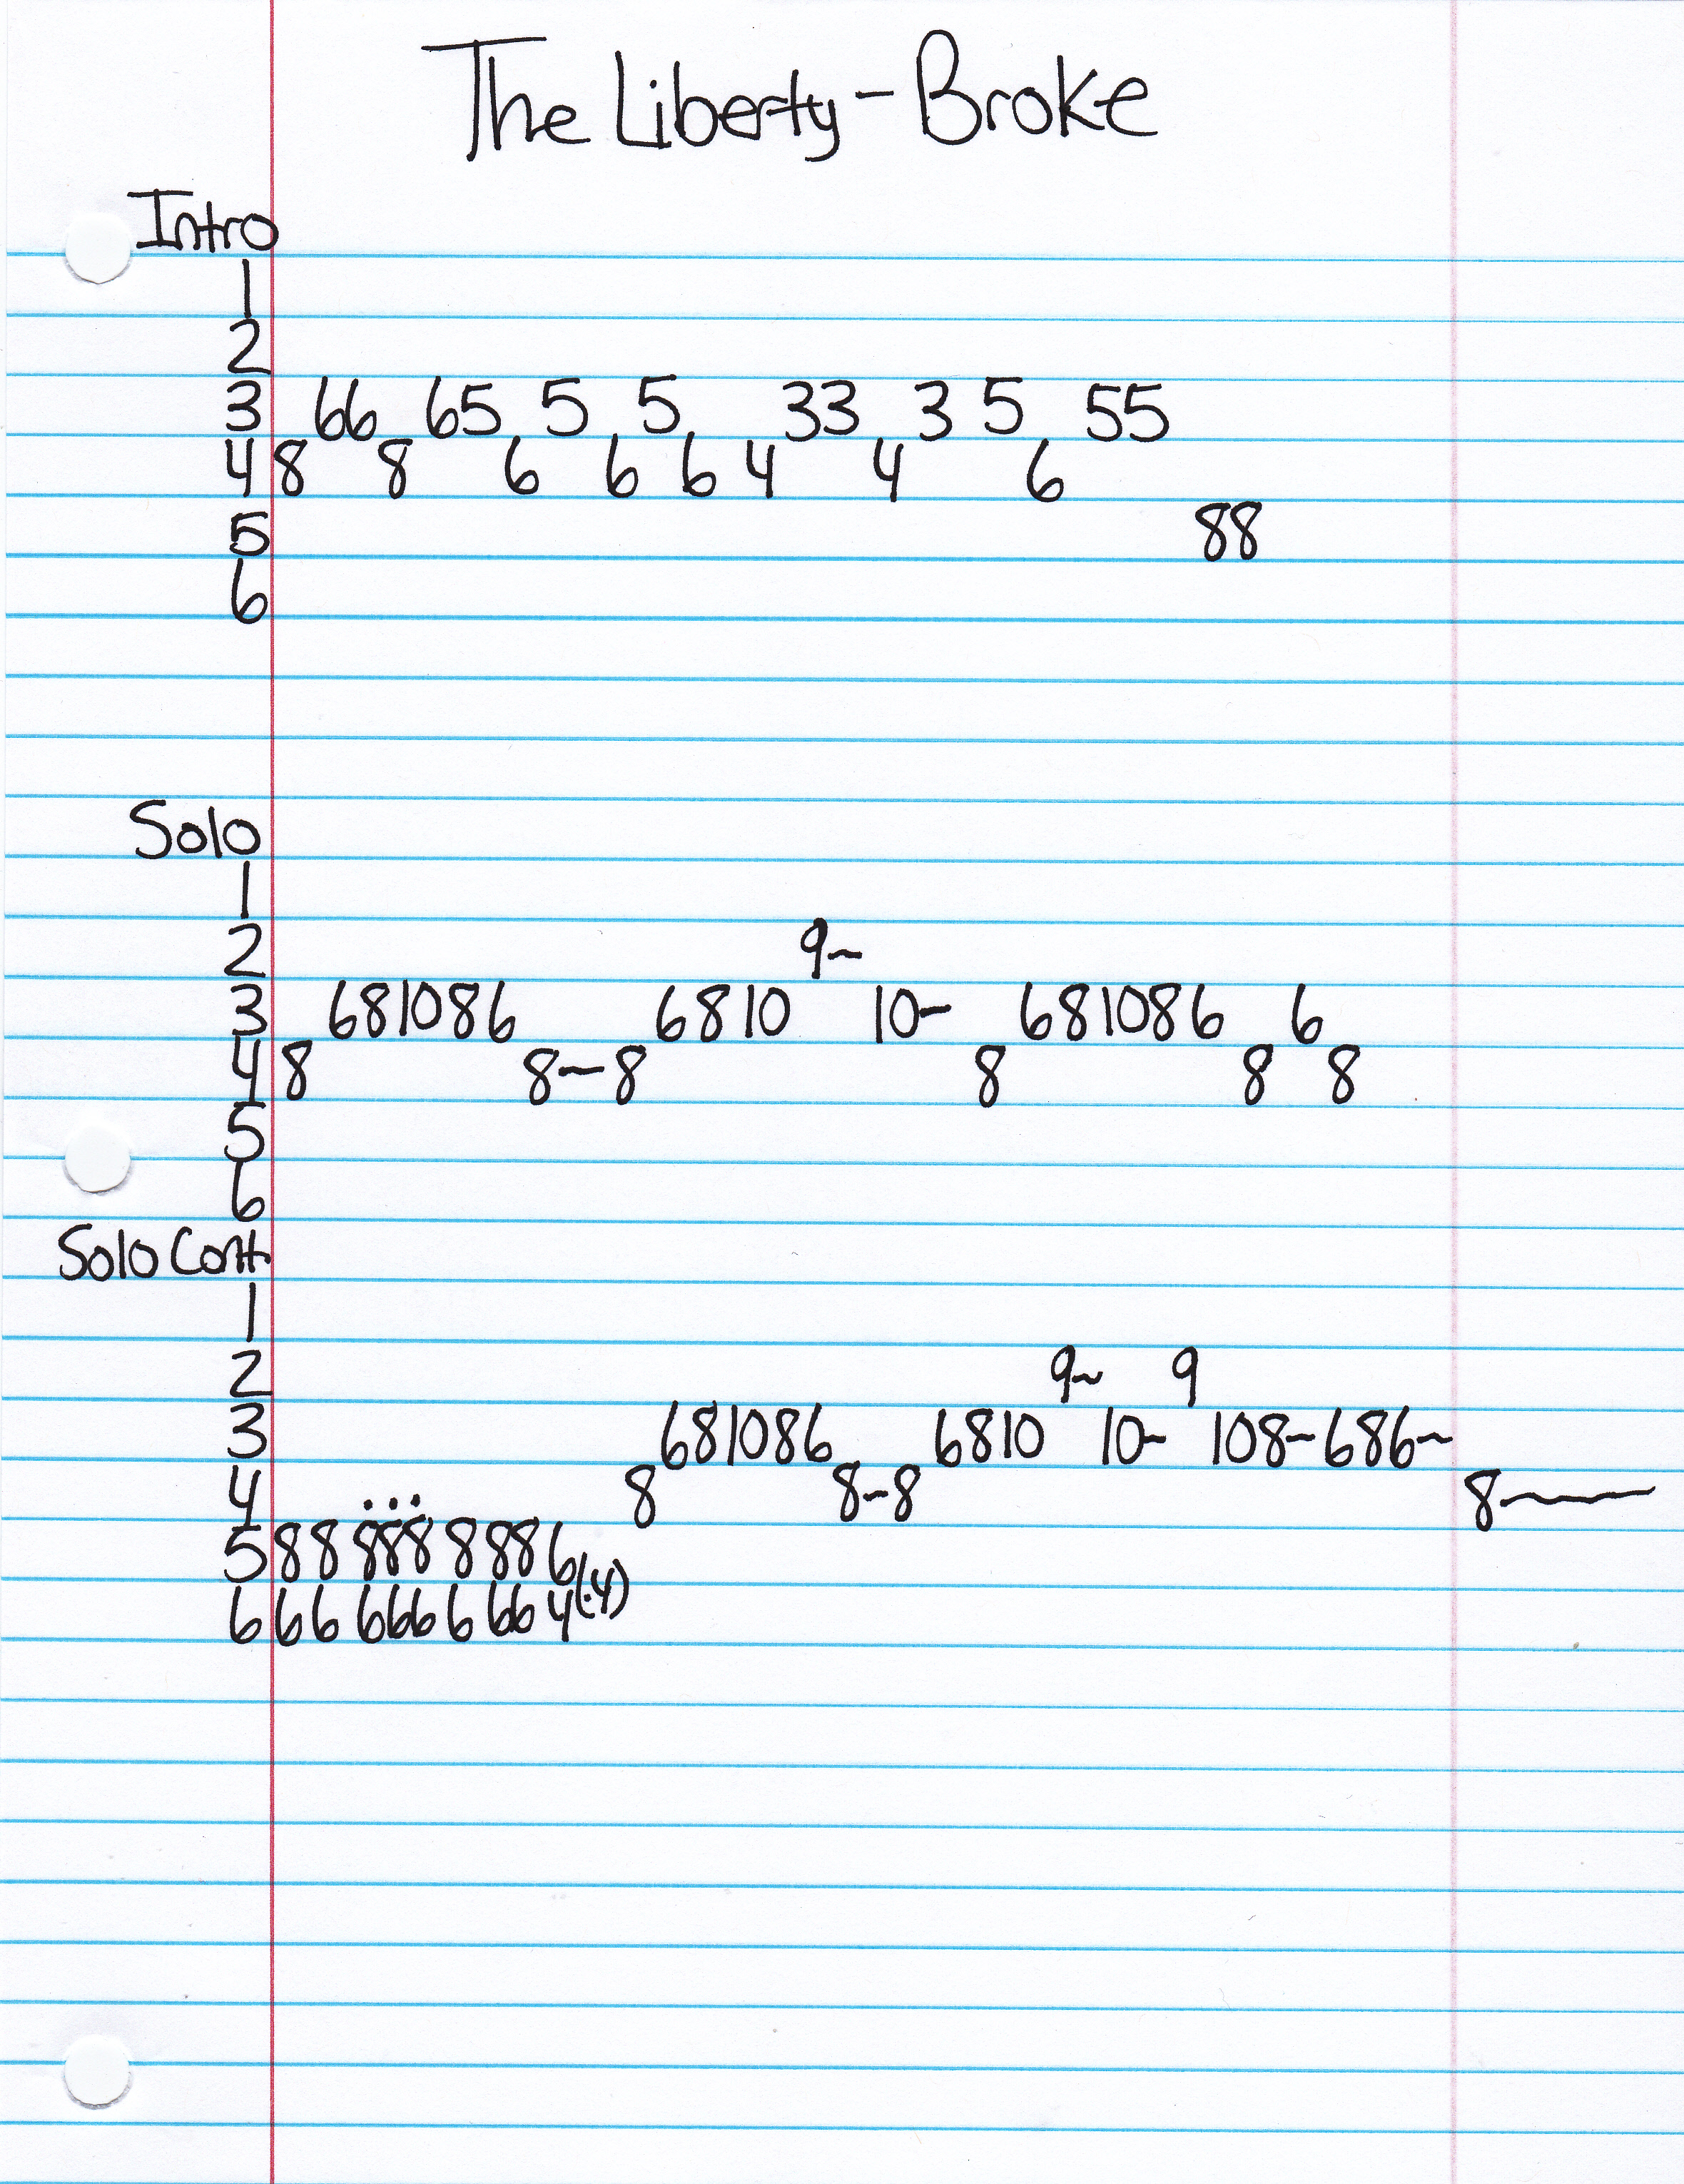 The Liberty - Broke
Intro
1
2
3 66 65 5 5 33 3 5 55
4 8 8 6 6 6 4 4 6
5 88
6
Solo
1
2 9~
3 681086 6810 10~ 681086 6
4 8 8~8 8 8 8
5
6
Solo Cont.
1
2 9~ 9
3 681086 6810 10~ 108~686~
4 8 8~8 8~
5 88 888 8 886
6 66 666 6 66 4(.4)